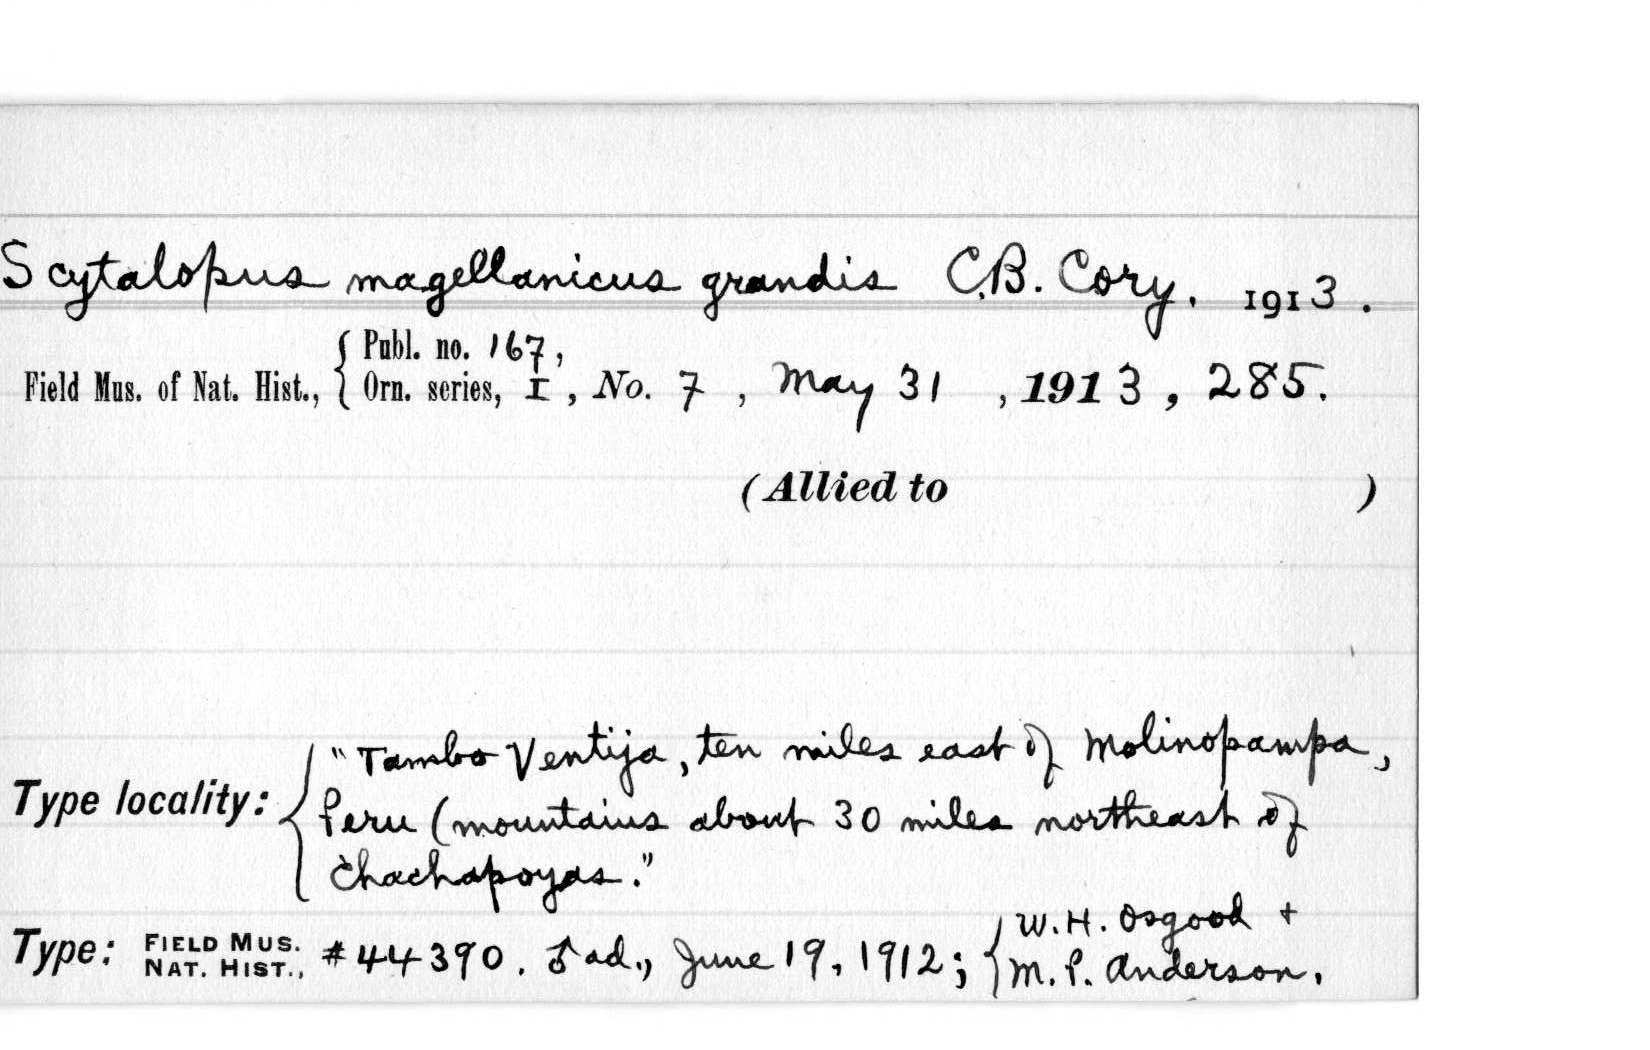 Scytalopus magellanicus grandis C.B. Cory. 1913.
Publ. no. 167,
Field Mus. of Nat. Hist., Orn. series, I, No. 7, May 31, 1913, 285.
(Allied to )
"Tambo Ventija, ten miles east of Molinopampa,
Type locality: Peru (mountains about 30 miles northeast of
Chachapoyas."
W.H. Osgood +
Type: FIELD MUS. NAT. HIST., #44390. ♂ ad., June 19, 1912; M.P. Anderson.